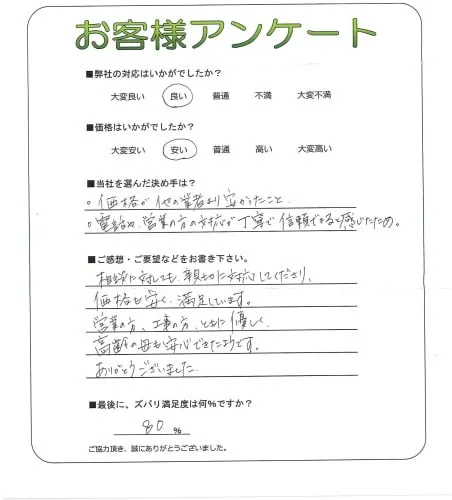 お客様アンケート
■弊社の対応はいかがでしたか？
大変良い 良い 普通 不満 大変不満
■価格はいかがでしたか？
大変安い 安い 普通 高い 大変高い
■当社を選んだ決め手は？
○価格が他の業者より安かったこと
○電話や、営業の方の対応が丁寧で信頼できると感じたため。
■ご感想・ご要望などをお書き下さい。
相談に対しても、親切に対応してくださり、
価格も安く、満足しています。
営業の方、工事の方、ともに優しく、
高齢の母も安心できたようです。
ありがとうございました。
■最後に、ズバリ満足度は何％ですか？
80 %
ご協力頂き、誠にありがとうございました。